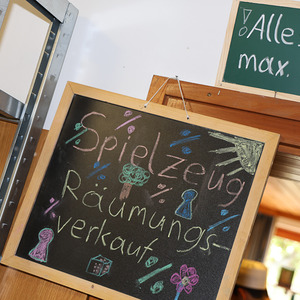 Spielzeug
Räumungs-
verkauf
! Alle
max.